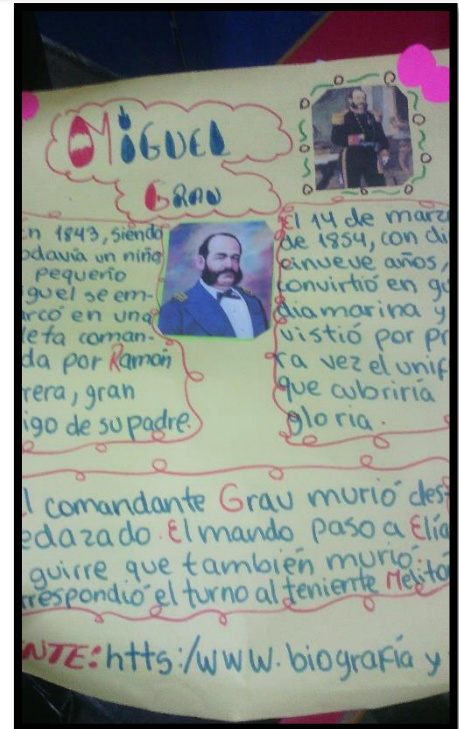 MIGUEL
GRAU
En 1843, siendo
odavía un niño
pequeño
guel se em-
rcó en una
leta coman-
da por Ramón
rera, gran
igo de su padre.
El 14 de marz
de 1854, con di
einueve años,
convirtió en gu
diamarina y
vistió por pr
ra vez el unif
que cubriría
gloria.
l comandante Grau murió des
edazado. El mando paso a Elía
guirre que también murió,
rrespondió el turno al teniente Melito
NTE: htts:/www.biografía y